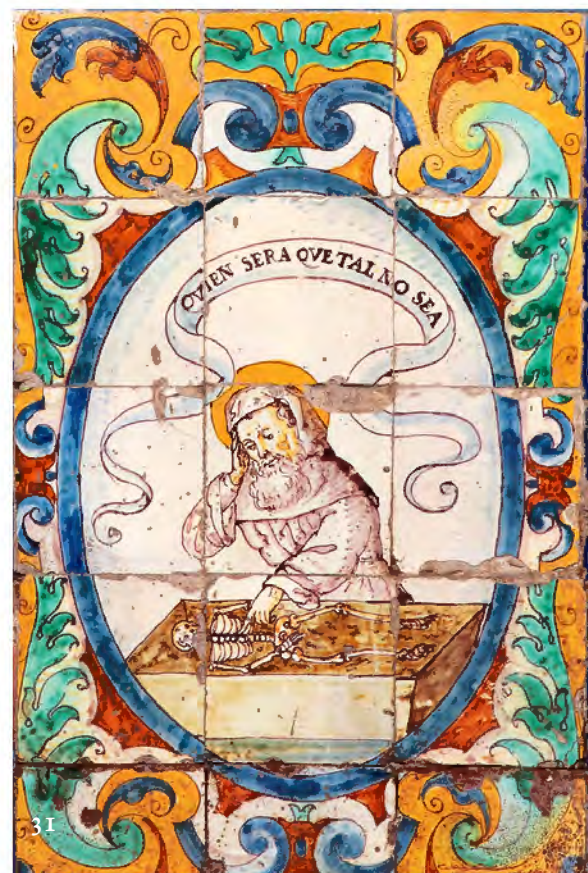 QVIEN SERA QVE TAL NO SEA
31